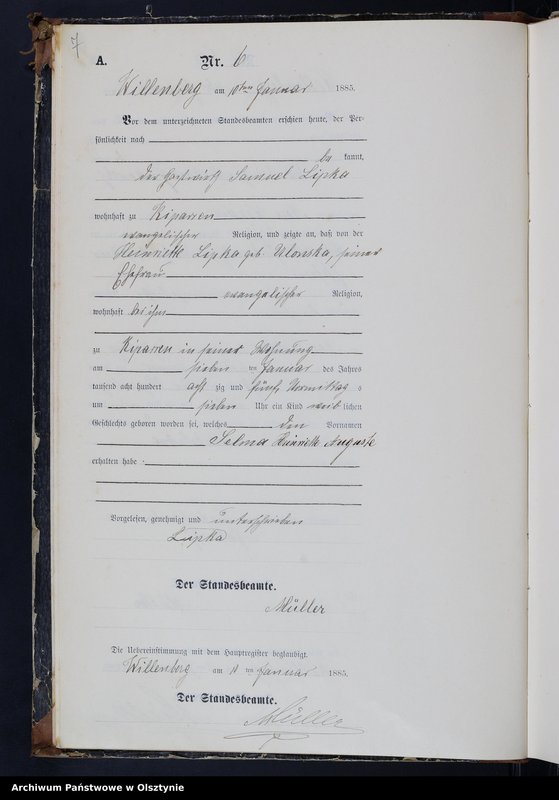 7
A. Nr. 6
Willenberg am 10ten Januar 1885.
Vor dem unterzeichneten Standesbeamten erschien heute, der Per-
sönlichkeit nach
be kannt,
der Gastwirth Samuel Lipka
wohnhaft zu Kiparren
evangelischer Religion, und zeigte an, daß von der
Heinriette Lipka geb. Ulonska, seiner
Ehefrau
evangelischer Religion,
wohnhaft bei ihm
zu Kiparren in seiner Wohnung
am sieben ten Januar des Jahres
tausend acht hundert acht zig und fünf, Vormittag s
um sieben Uhr ein Kind weib lichen
Geschlechts geboren worden sei, welches den Vornamen
Selma Heinriette Auguste
erhalten habe.
Vorgelesen, genehmigt und unterschrieben
Lipka
Der Standesbeamte.
Müller
Die Uebereinstimmung mit dem Hauptregister beglaubigt.
Willenberg am ten Januar 1885.
Der Standesbeamte.
Müller
Archiwum Państwowe w Olsztynie